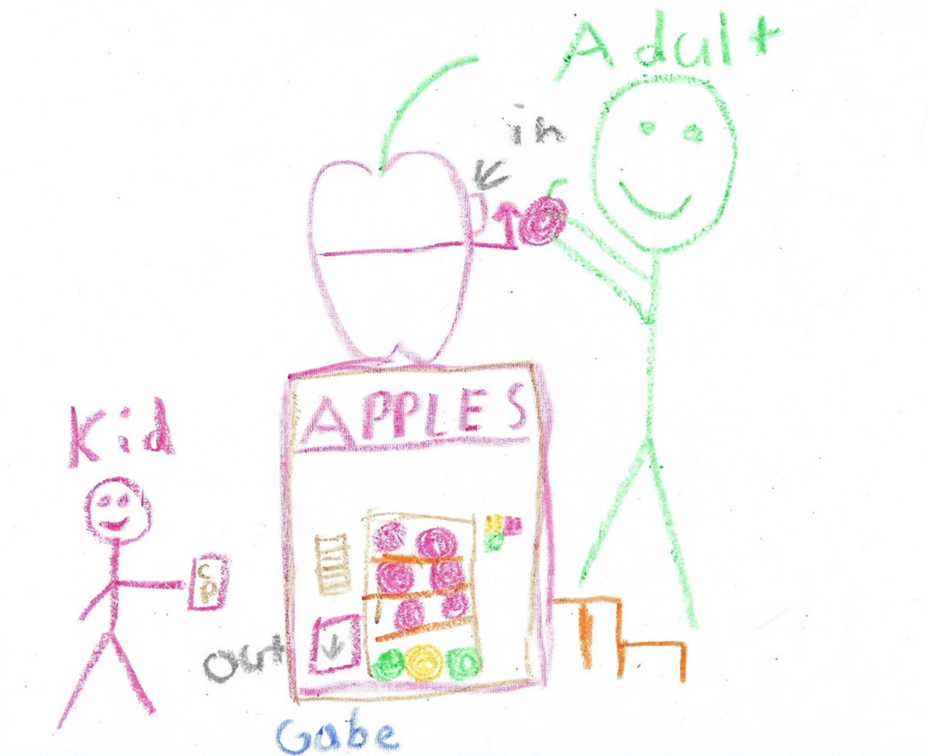 Adult
in
APPLES
Kid
CP
out
Gabe